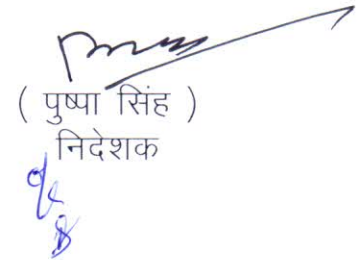 ( पुष्पा सिंह )
निदेशक